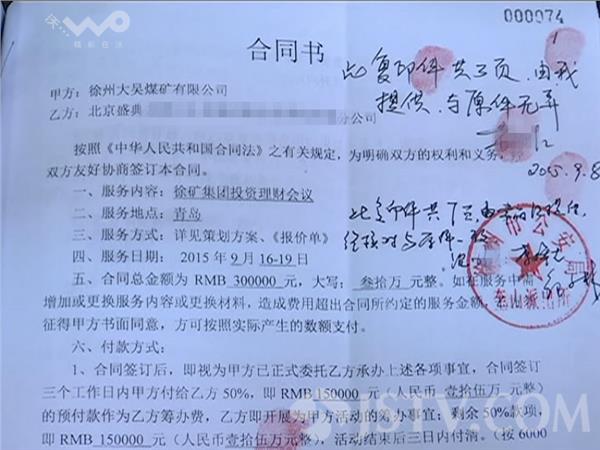 000074
合同书
甲方：徐州大吴煤矿有限公司
乙方：北京盛典
分公司
此复印件共三页，由我
提供，与原件无异
2015.9.8
按照《中华人民共和国合同法》之有关规定，为明确双方的权利和义务，
双方友好协商签订本合同。
一、服务内容：徐矿集团投资理财会议
二、服务地点：青岛
三、服务方式：详见策划方案、《报价单》
四、服务日期：2015 年 9 月 16-19 日
此复印件共7页，由
经核对与原件一致
市公安局
派出所
五、合同总金额为 RMB 300000 元，大写：叁拾万 元整。如在服务中需
增加或更换服务内容或更换材料，造成费用超出合同所约定的服务金额，
征得甲方书面同意，方可按照实际产生的数额支付。
六、付款方式：
1、合同签订后，即视为甲方已正式委托乙方承办上述各项事宜，合同签订
三个工作日内甲方付给乙方 50%，即 RMB 150000 元（人民币 壹拾伍万 元整）
的预付款作为乙方筹办费，乙方即开展为甲方活动的筹办事宜；剩余 50%款项，
即 RMB 150000 元（人民币壹拾伍万元整），活动结束后三日内付清。（按 6000
JSTV.COM